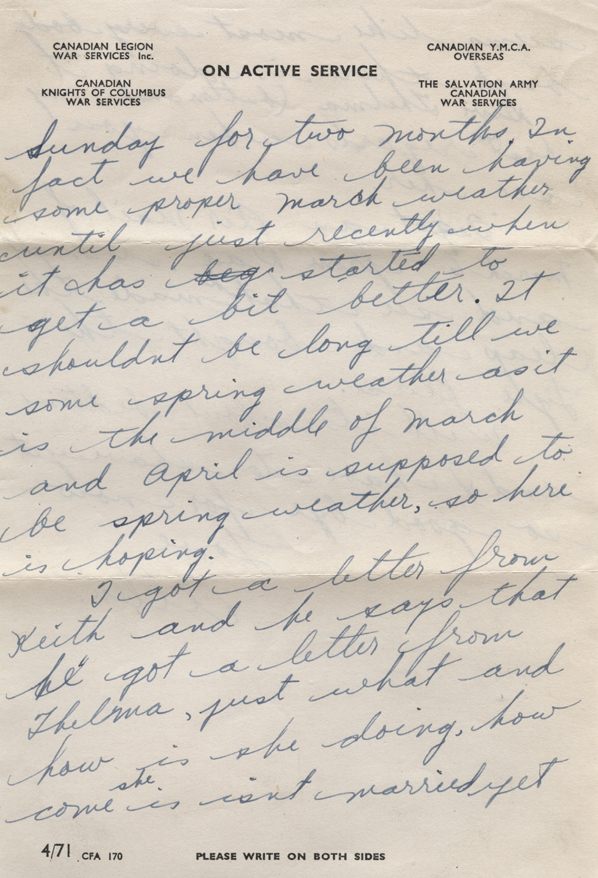 CANADIAN LEGION
WAR SERVICES Inc.
CANADIAN
KNIGHTS OF COLUMBUS
WAR SERVICES
ON ACTIVE SERVICE
CANADIAN Y.M.C.A.
OVERSEAS
THE SALVATION ARMY
CANADIAN
WAR SERVICES
Sunday for two months. In
fact we have been having
some proper march weather
until just recently when
it has beg started to
get a bit better. It
shouldnt be long till we
some spring weather as it
is the middle of march
and April is supposed to
be spring weather, so here
is hoping.
I got a letter from
Keith and he says that
he got a letter from
Thelma, just what and
how is she doing, how
come she is isnt married yet
4/71 CFA 170 PLEASE WRITE ON BOTH SIDES